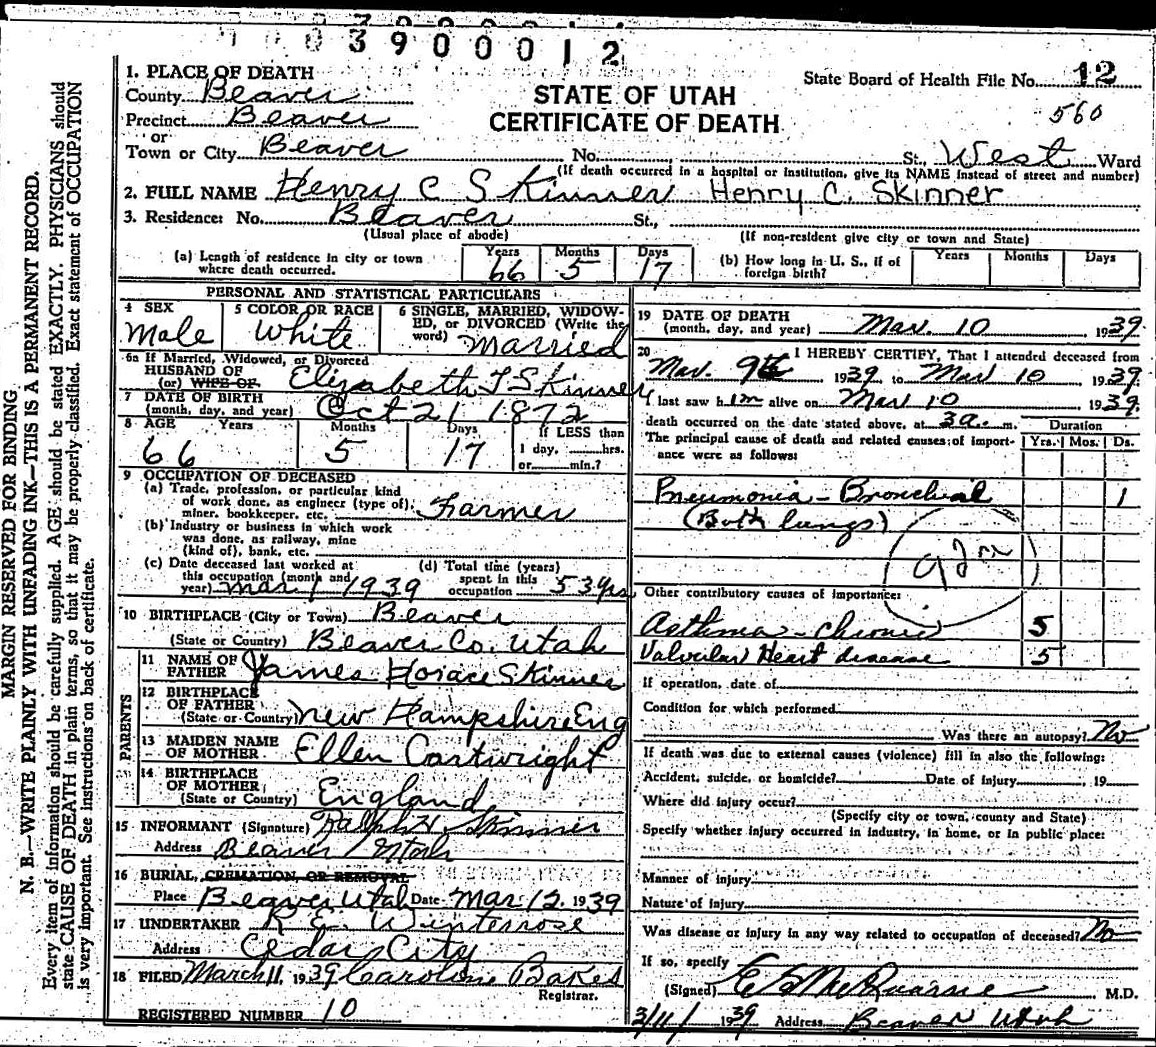 3900012
1. PLACE OF DEATH
State Board of Health File No. 12
County Beaver
STATE OF UTAH
560
Precinct Beaver
CERTIFICATE OF DEATH
or
Town or City Beaver No. St., West Ward
(If death occurred in a hospital or institution, give its NAME instead of street and number)
2. FULL NAME Henry C Skinner Henry C. Skinner
3. Residence: No. Beaver St.,
(Usual place of abode) (If non-resident give city or town and State)
(a) Length of residence in city or town where death occurred. Years 66 Months 5 Days 17
(b) How long in U. S., if of foreign birth? Years Months Days
PERSONAL AND STATISTICAL PARTICULARS
4 SEX Male
5 COLOR OR RACE White
6 SINGLE, MARRIED, WIDOW-
ED, or DIVORCED (Write the
word) Married
6a If Married, Widowed, or Divorced
HUSBAND OF
(or) WIFE OF Elizabeth T Skinner
7 DATE OF BIRTH
(month, day, and year) Oct 21 1872
8 AGE Years 66 Months 5 Days 17
If LESS than
1 day, hrs.
or min.?
9 OCCUPATION OF DECEASED
(a) Trade, profession, or particular kind
of work done, as engineer (type of),
miner, bookkeeper, etc. Farmer
(b) Industry or business in which work
was done, as railway, mine
(kind of), bank, etc.
(c) Date deceased last worked at
this occupation (month and
year) Mar 1 1939
(d) Total time (years)
spent in this
occupation 53 yrs
10 BIRTHPLACE (City or Town) Beaver
(State or Country) Beaver Co. Utah
PARENTS
11 NAME OF
FATHER James Horace Skinner
12 BIRTHPLACE
OF FATHER
(State or Country) New Hampshire Eng
13 MAIDEN NAME
OF MOTHER Ellen Cartwright
14 BIRTHPLACE
OF MOTHER
(State or Country) England
15 INFORMANT (Signature) Ralph H. Skinner
Address Beaver Utah
16 BURIAL, CREMATION, OR REMOVAL
Place Beaver Utah Date Mar 12, 1939
17 UNDERTAKER R. E. Winterrose
Address Cedar City
18 FILED March 11, 1939 Caroline Bakes
Registrar.
REGISTERED NUMBER 10
19 DATE OF DEATH
(month, day, and year) Mar. 10 1939
20 I HEREBY CERTIFY, That I attended deceased from
Mar. 9th 1939 to Mar 10 1939
I last saw him alive on Mar 10 1939.
death occurred on the date stated above, at 3 a. m. Duration
The principal cause of death and related causes of import-
ance were as follows: Yrs. Mos. Ds.
Pneumonia - Bronchial 1
(Both lungs)
Other contributory causes of importance:
Asthma - Chronic 5
Valvular Heart disease 5
If operation, date of
Condition for which performed
Was there an autopsy? No
If death was due to external causes (violence) fill in also the following:
Accident, suicide, or homicide? Date of injury 19
Where did injury occur?
(Specify city or town, county and State)
Specify whether injury occurred in industry, in home, or in public place:
Manner of injury
Nature of injury
Was disease or injury in any way related to occupation of deceased? No
If so, specify
(Signed) M.D.
3/11/ 1939 Address Beaver Utah
MARGIN RESERVED FOR BINDING
N. B.—WRITE PLAINLY WITH UNFADING INK—THIS IS A PERMANENT RECORD.
Every item of information should be carefully supplied. AGE should be stated EXACTLY. PHYSICIANS should
state CAUSE OF DEATH in plain terms, so that it may be properly classified. Exact statement of OCCUPATION
is very important. See instructions on back of certificate.